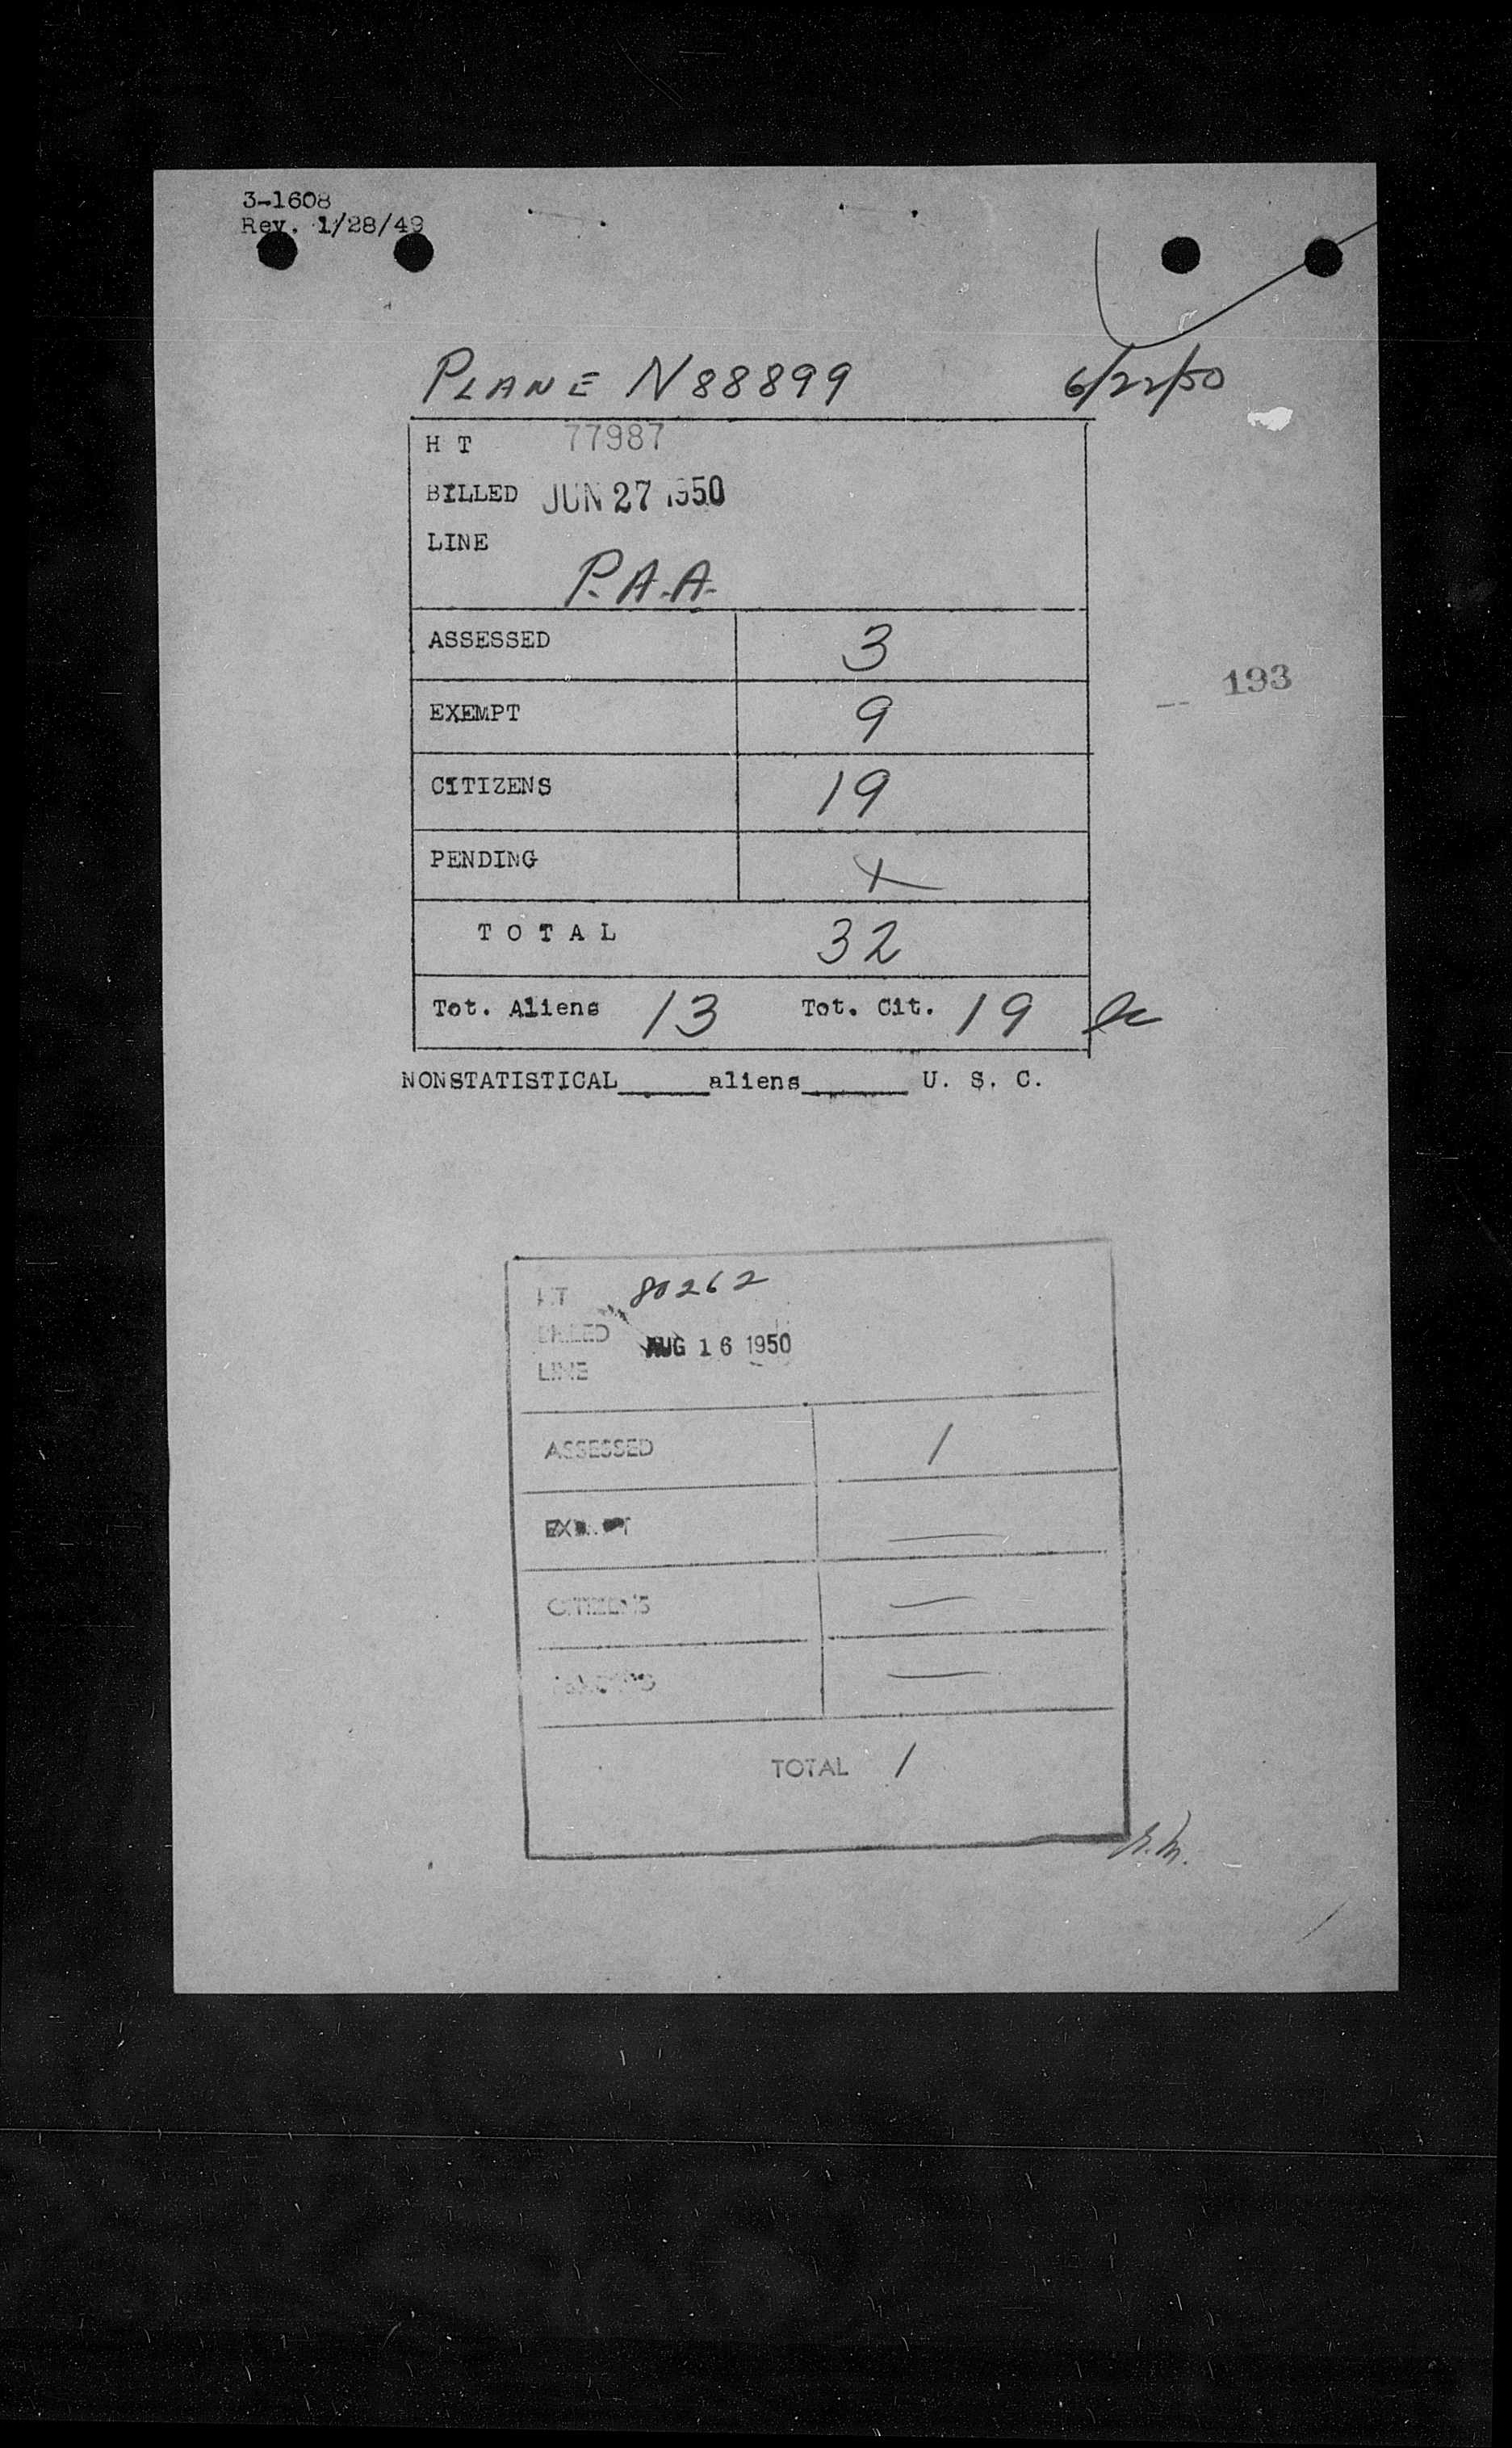 3-1608
Rev. 1/28/49
PLANE N88899 6/22/50
H T 77987
BILLED JUN 27 1950
LINE
P.A.A.
ASSESSED 3
193
EXEMPT 9
CITIZENS 19
PENDING
T O T A L 32
Tot. Aliens 13 Tot. Cit. 19
NONSTATISTICAL_____aliens______ U. S. C.
H.T 80262
BILLED AUG 16 1950
LINE
ASSESSED 1
EXEMPT —
CITIZENS —
PENDING —
TOTAL 1